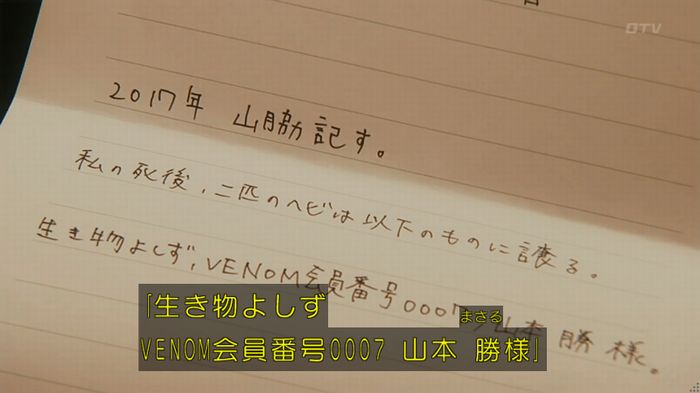 OTV
2017年 山脇記す。
私の死後、二匹のヘビは以下のものに譲る。
生き物よしず、VENOM会員番号0007 山本 勝 様。
「生き物よしず
まさる
VENOM会員番号0007 山本 勝様」